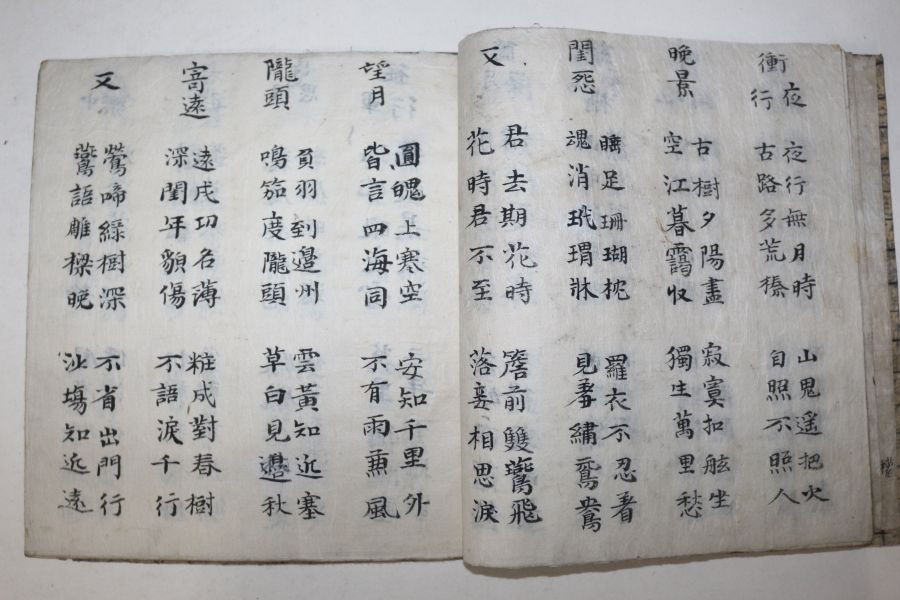 衝夜行
夜行無月時
古路多荒榛
山鬼遥把火
自照不照人
晩景
古樹夕陽盡
空江暮靄収
寂寞扣舷坐
獨生萬里愁
閨怨
睡足珊瑚枕
魂消玳瑁牀
羅衣不忍着
見羞繡鴛鴦
又
君去期花時
花時君不至
簷前雙鷰飛
落妾相思淚
望月
圓魄上寒空
皆言四海同
安知千里外
不有雨兼風
隴頭
負羽到邉州
鳴笳度隴頭
雲黃知近塞
草白見邉秋
寄遠
遠戍功名薄
深閨年貌傷
粧成對春樹
不語淚千行
又
鶯啼綠樹深
鷰語雕樑晩
不省出門行
沙塲知近遠